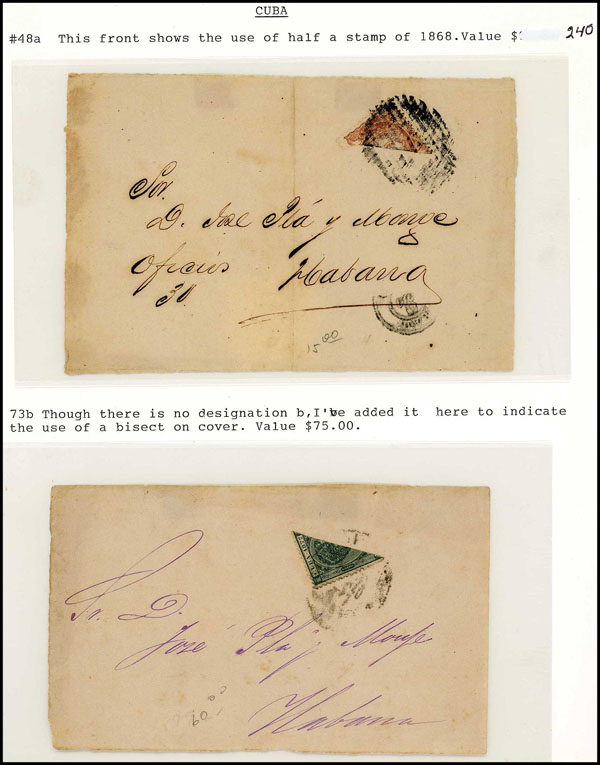 CUBA
#48a This front shows the use of half a stamp of 1868.Value $ 240
Sor.
D. José Plá y Monge
Oficios Habana
30
15 00
73b Though there is no designation b,I've added it here to indicate
the use of a bisect on cover. Value $75.00.
Sr. D.
José Plá y Monge
60 00
Habana